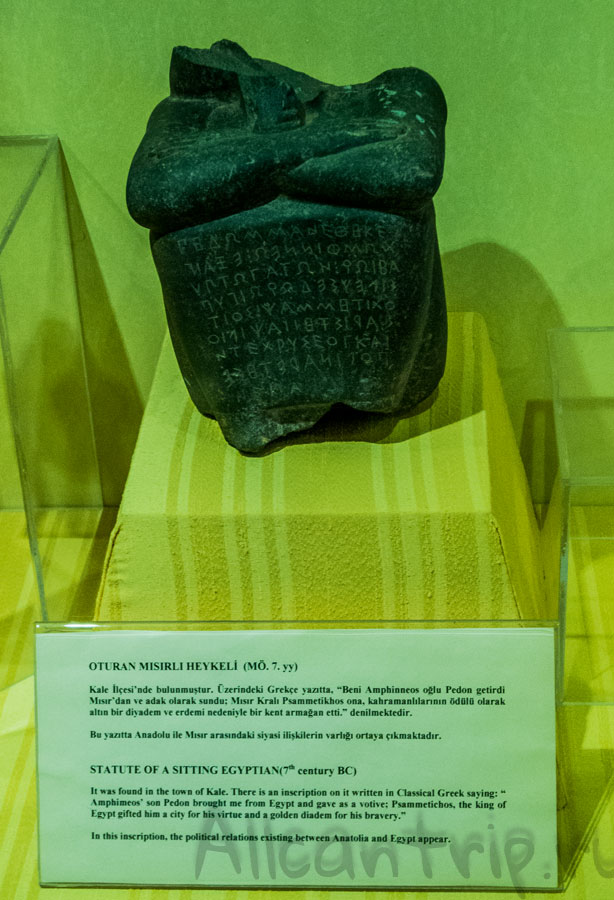 ΠΗΔΩΜΜΑΝΕΘΗΚΕ
ΤΙΟΣ:ΨΑΜΜΗΤΙΧΟ
ΝΤΕΧΡΥΣΕΟΓΚΑΙ
OTURAN MISIRLI HEYKELİ (MÖ. 7. yy)
Kale İlçesi'nde bulunmuştur. Üzerindeki Grekçe yazıtta, “Beni Amphinneos oğlu Pedon getirdi
Mısır'dan ve adak olarak sundu; Mısır Kralı Psammetikhos ona, kahramanlılarının ödülü olarak
altın bir diyadem ve erdemi nedeniyle bir kent armağan etti.” denilmektedir.
Bu yazıtta Anadolu ile Mısır arasındaki siyasi ilişkilerin varlığı ortaya çıkmaktadır.
STATUTE OF A SITTING EGYPTIAN(7th century BC)
It was found in the town of Kale. There is an inscription on it written in Classical Greek saying: “
Amphimeos' son Pedon brought me from Egypt and gave as a votive; Psammetichos, the king of
Egypt gifted him a city for his virtue and a golden diadem for his bravery.”
In this inscription, the political relations existing between Anatolia and Egypt appear.
Alicantrip.ru